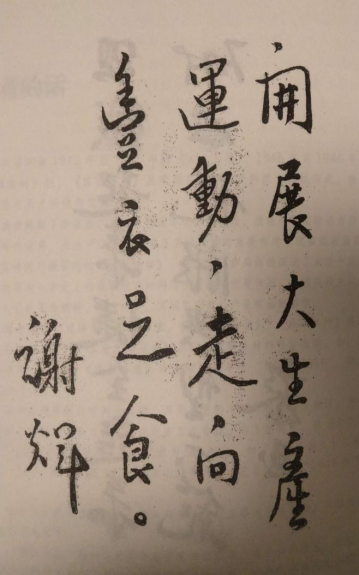 開展大生產
運動，走向
豐衣足食。
謝輝